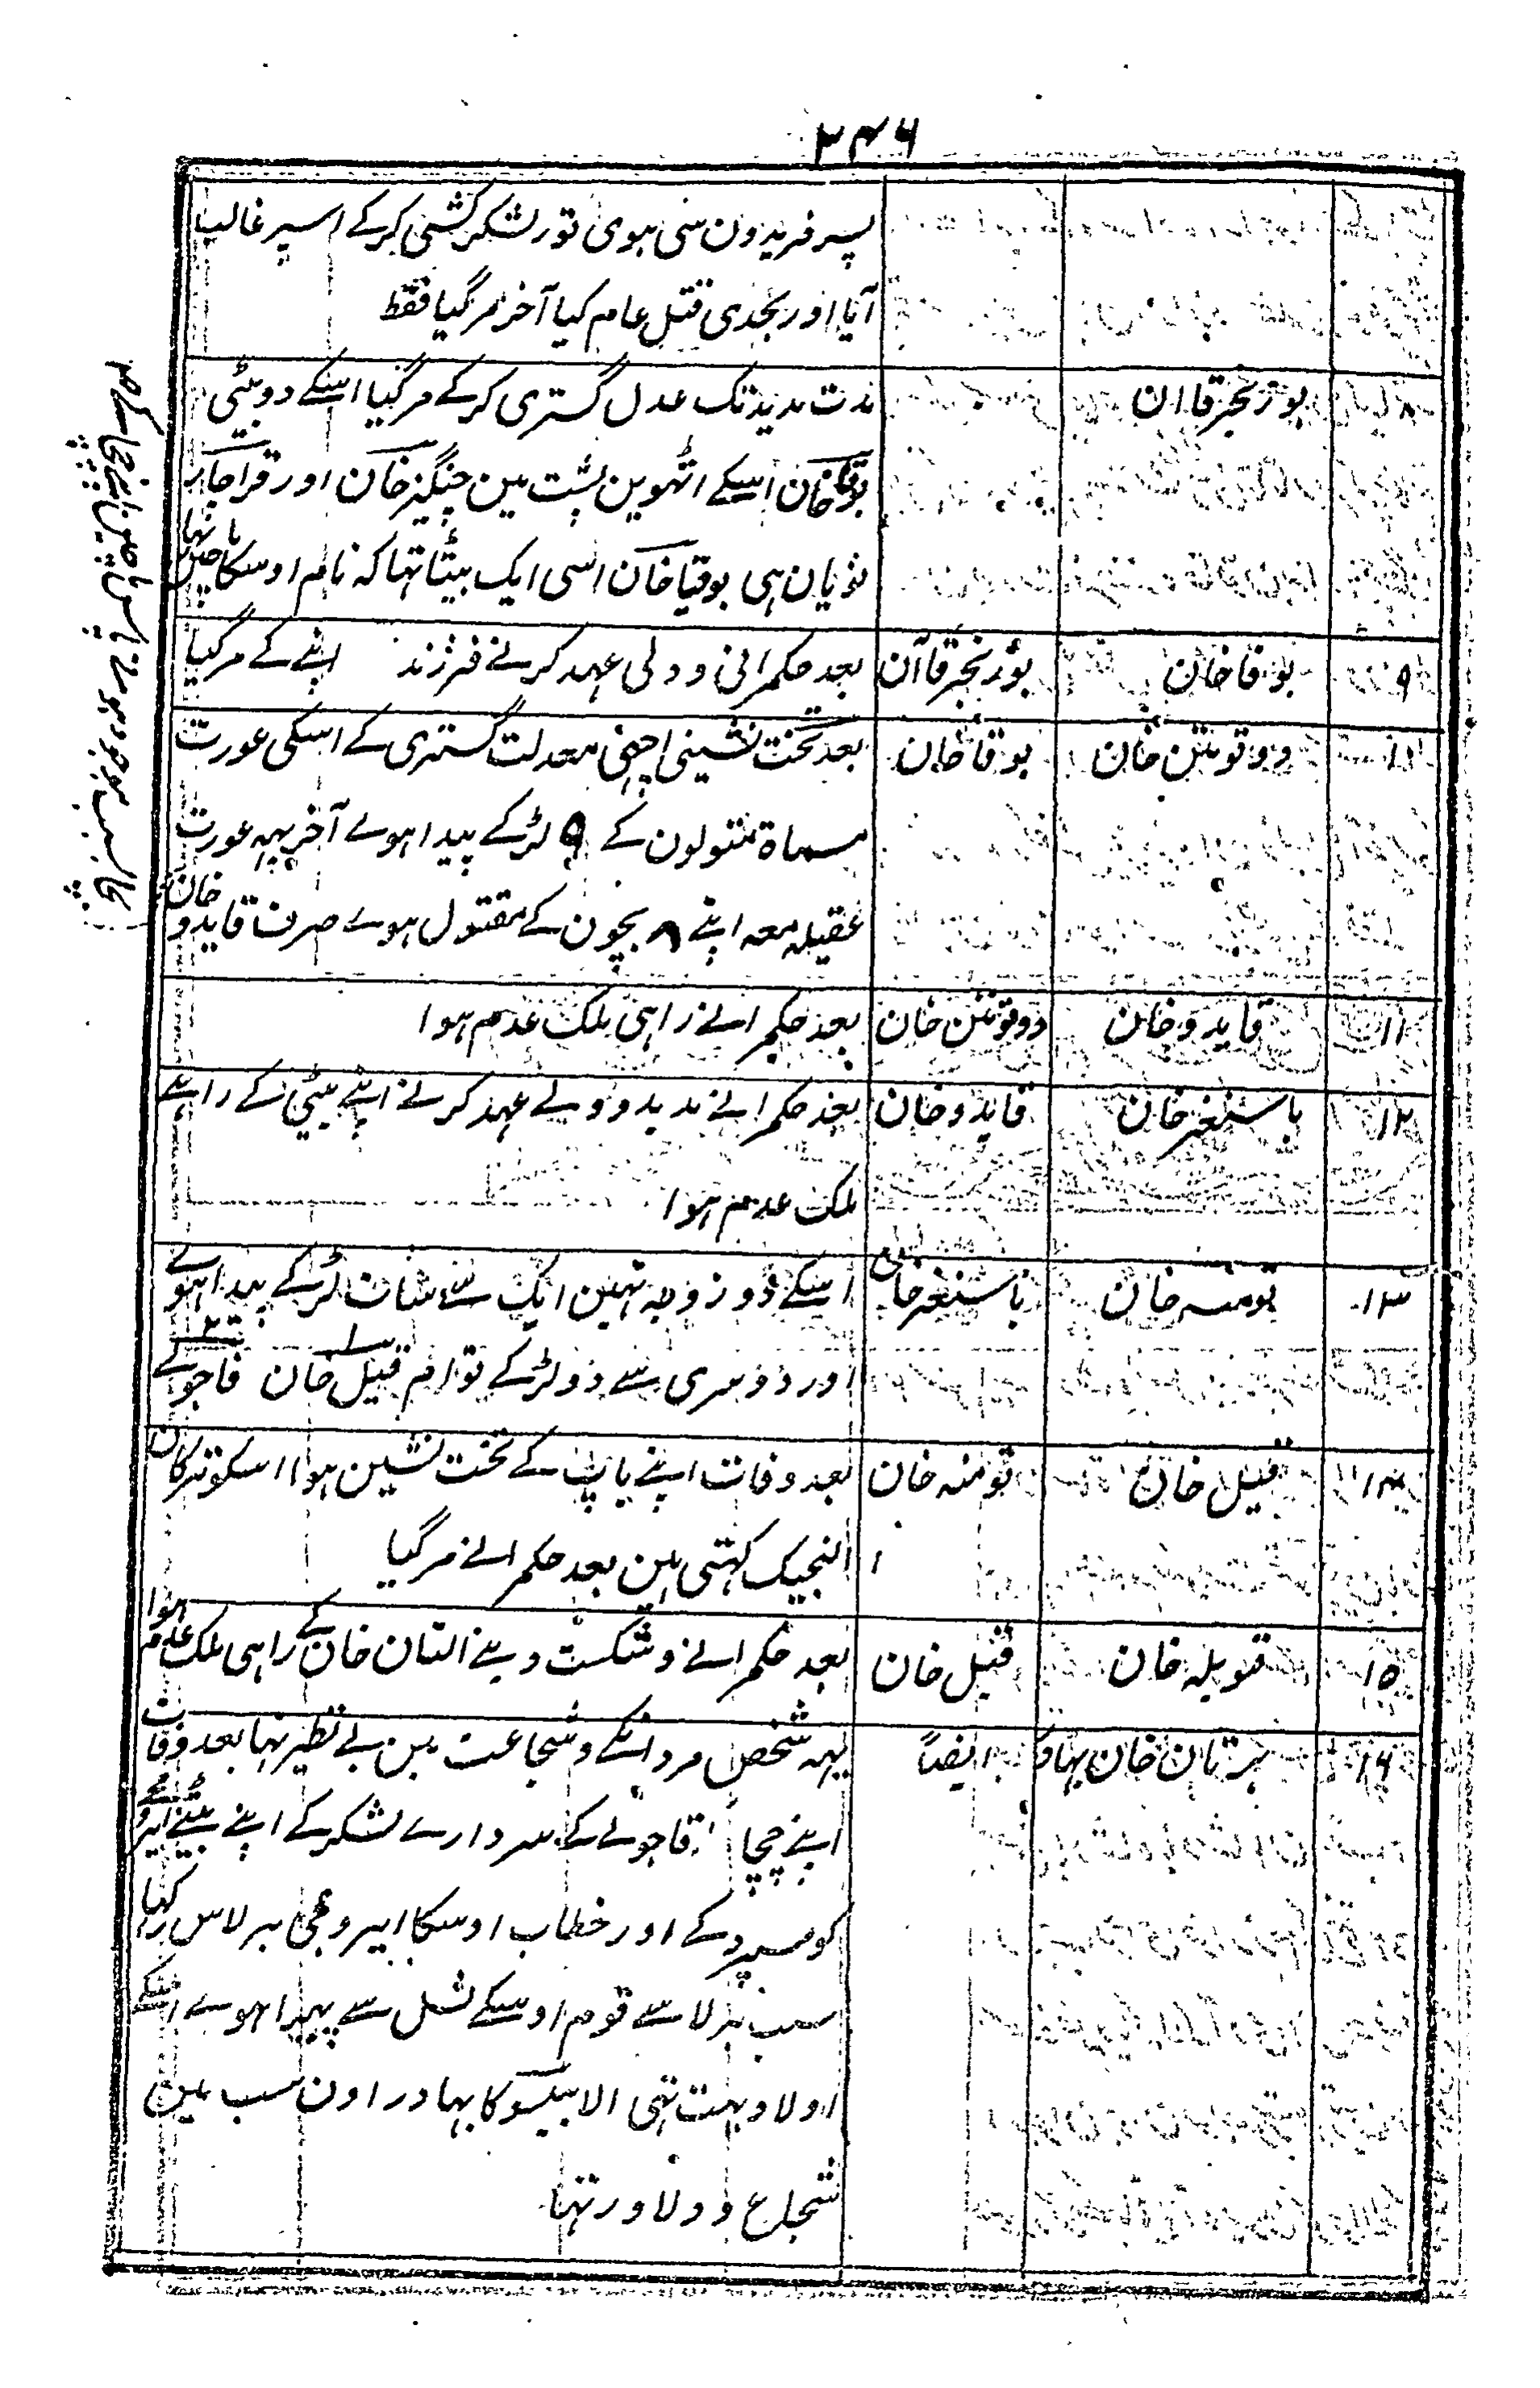 ۳۴۶
پسر فریدون سی ہوی تور لشکر کشی کرکے اسپر غالب
آیا اور بجدی قتل عام کیا آخر مر گیا فقط
۸ بوزنجر قاان مدت مدید تک عدل گستری کرکے مر گیا اسکے دو بیٹی
بوقا خان اسکے اٹہوین پشت مین چنگیز خان اور قراچار
نویان ہی بوقیا خان اسی ایک بیٹا تہا کہ نام اوسکا
۹ بوقا خان بوزنجر قاآن بعد حکمرانی و ولی عہد کرنے فرزند اپنے کے مر گیا
۱۰ دوتومنن خان بوقا خان بعد تخت نشینی اچھی معدلت گستری کے اسکی عورت
مسماۃ منولون کے ۹ لڑکے پیدا ہوے آخر یہہ عورت
عقیلہ معہ اپنے ۸ بچون کے مقتول ہوے صرف قایدو خان
۱۱ قایدو خان دوتومنن خان بعد حکمرانے راہی ملک عدم ہوا
۱۲ باسنغر خان قایدو خان بعد حکمرانے مدید و ولے عہد کرنے اپنے بیٹی کے راہے
ملک عدم ہوا
۱۳ تومنہ خان باسنغر خان اسکے دو زوجہ تہین ایک سے سات لڑکے پیدا ہوے
اور دوسری سے دو لڑکے توام قبیل خان قاجولے
۱۴ قبیل خان تومنہ خان بعد وفات اپنے باپ کے تخت نشین ہوا اسکو
النجیک کہتی ہین بعد حکمرانے مر گیا
۱۵ قویلہ خان قبیل خان بعد حکمرانے و شکست دینے التان خان کے راہی ملک عدم ہوا
۱۶ برتان خان بہادر ایضاً یہہ شخص مردانگے و شجاعت مین بے نظیر تہا بعد وفات
اپنے چچا قاجولے کے سردارے لشکر کے اپنے بیٹے
کو سپرد کے اور خطاب اوسکا ایرومجی برلاس رکہا
سب برلاسے قوم اوسکے نسل سے پیدا ہوے اسکے
اولاد بہت تہی الا بیسوکا بہادر اون سب مین
شجاع و دلاور تہا